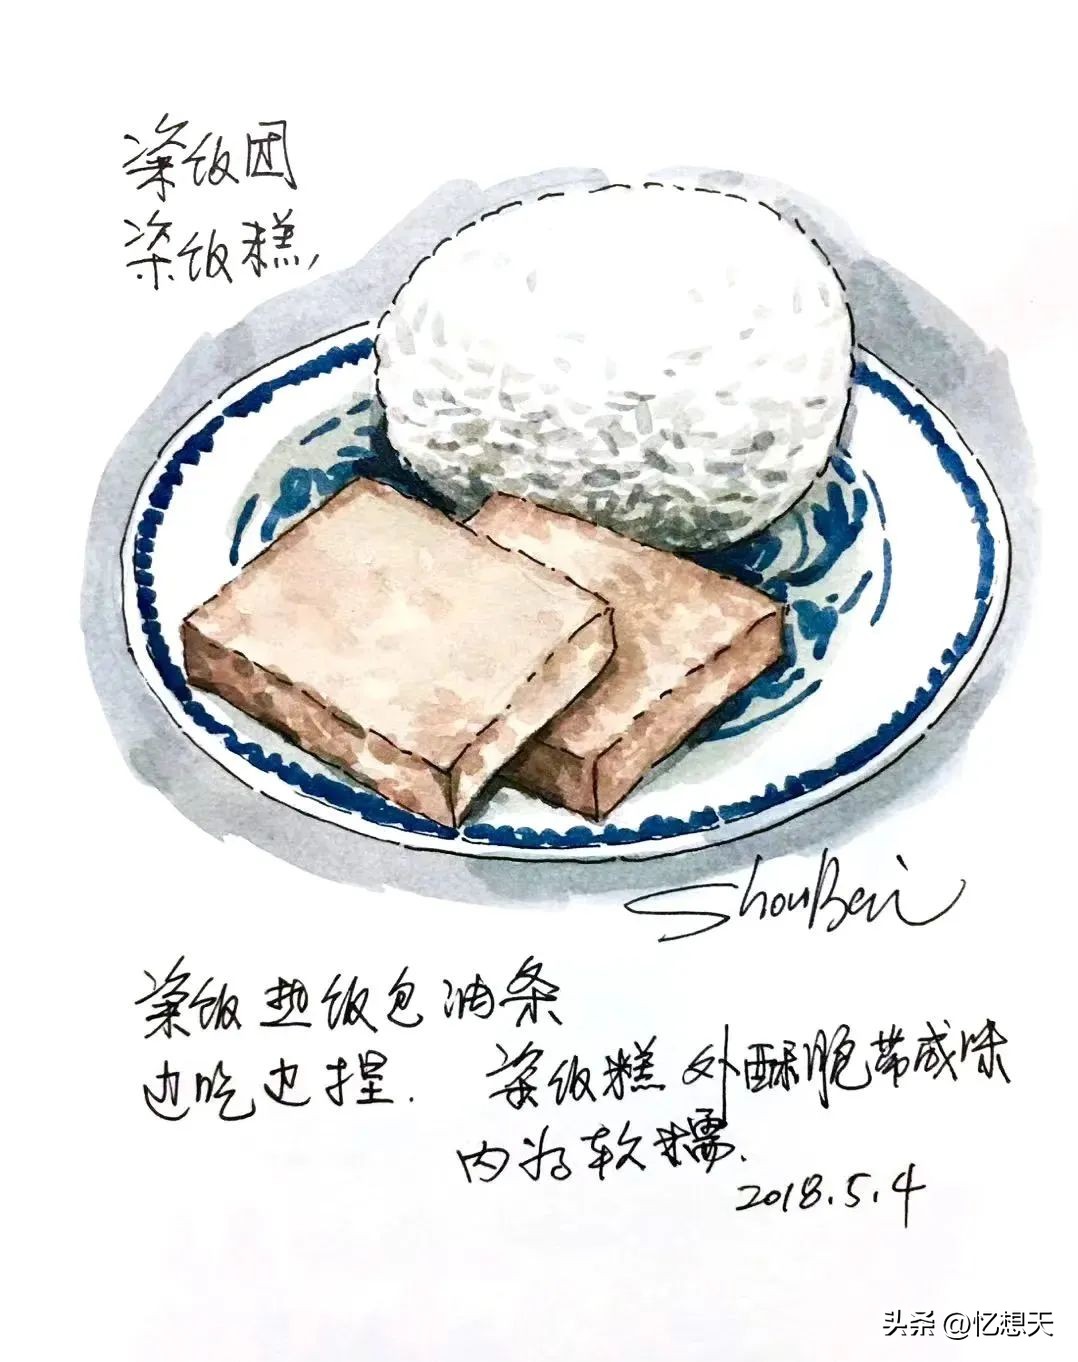 粢饭团
粢饭糕,
ShouBei
粢饭 热饭包油条
边吃边捏.
粢饭糕 外酥脆带咸味
内为软糯.
2018.5.4
头条 @忆想天